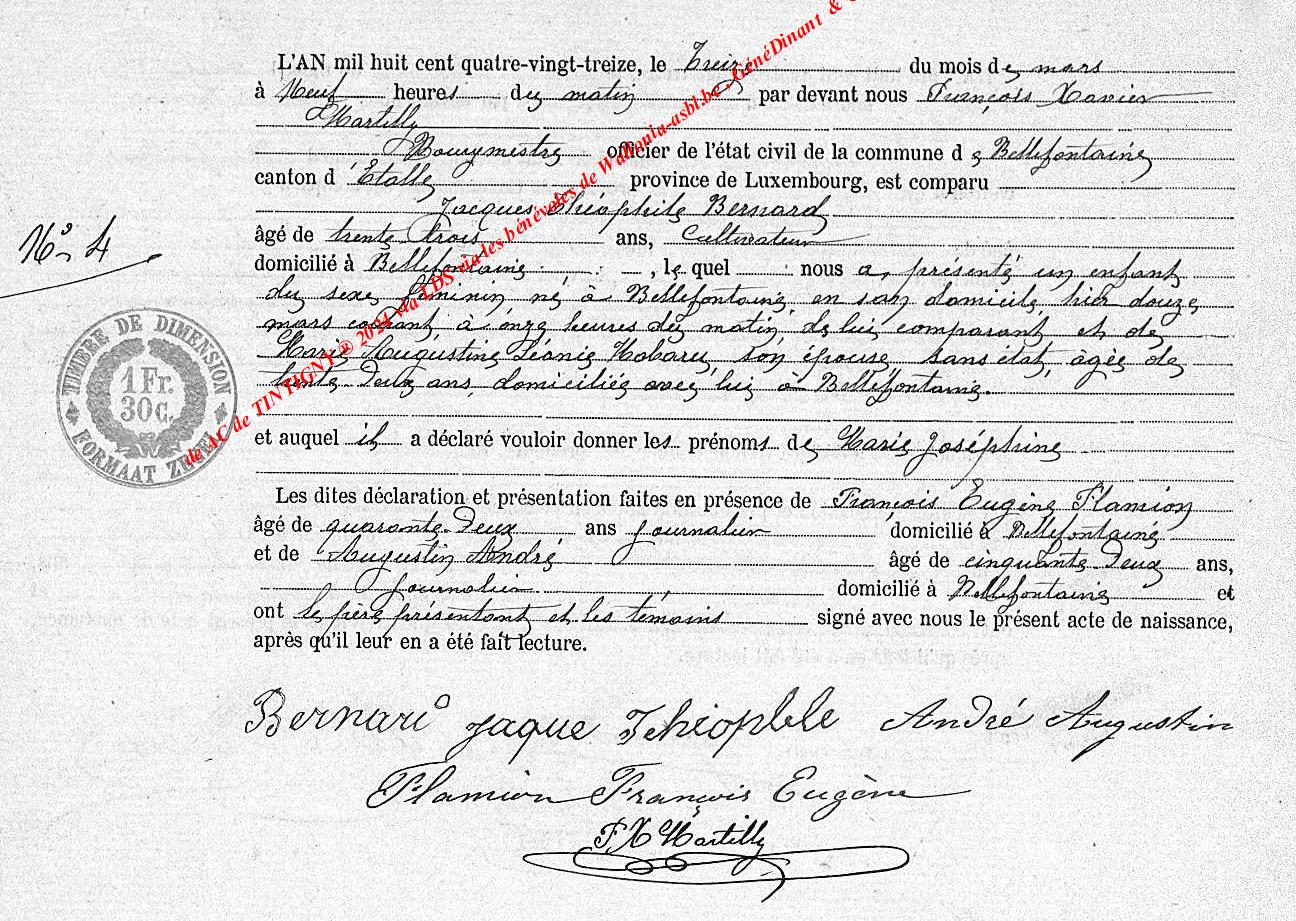 L'AN mil huit cent quatre-vingt-treize, le Treize du mois de mars
à Neuf heures du matin par devant nous François Xavier
Martilly
Bourgmestre officier de l'état civil de la commune de Bellefontaine
canton d'Etalle province de Luxembourg, est comparu
Jacques Théophile Bernard
âgé de trente trois ans, Cultivateur
domicilié à Bellefontaine, le quel nous a présenté un enfant
du sexe féminin né à Bellefontaine, en son domicile, hier douze
mars courant à onze heures du matin, de lui comparant et de
Marie Augustine Léonie son épouse, sans état, agée de
trente-Deux ans, domiciliée avec lui à Bellefontaine.
et auquel il a déclaré vouloir donner les prénoms de Marie Joséphine
Les dites déclaration et présentation faites en présence de François Eugène Flamion
âgé de quarante-Deux ans journalier domicilié à Bellefontaine
et de Augustin André âgé de cinquante Deux ans,
journalier domicilié à Bellefontaine et
ont le père présentant et les témoins signé avec nous le présent acte de naissance,
après qu'il leur en a été fait lecture.
No 4
TIMBRE DE DIMENSION
1 Fr.
30 c.
FORMAAT ZEGEL
de AC de TINTIGNY ® 2024 via LDS via les bénévoles de Wallonia-asbl.be, GénéDinant &
Bernard Jaque Théophile André Augustin
Flamion François Eugène
F X Martilly